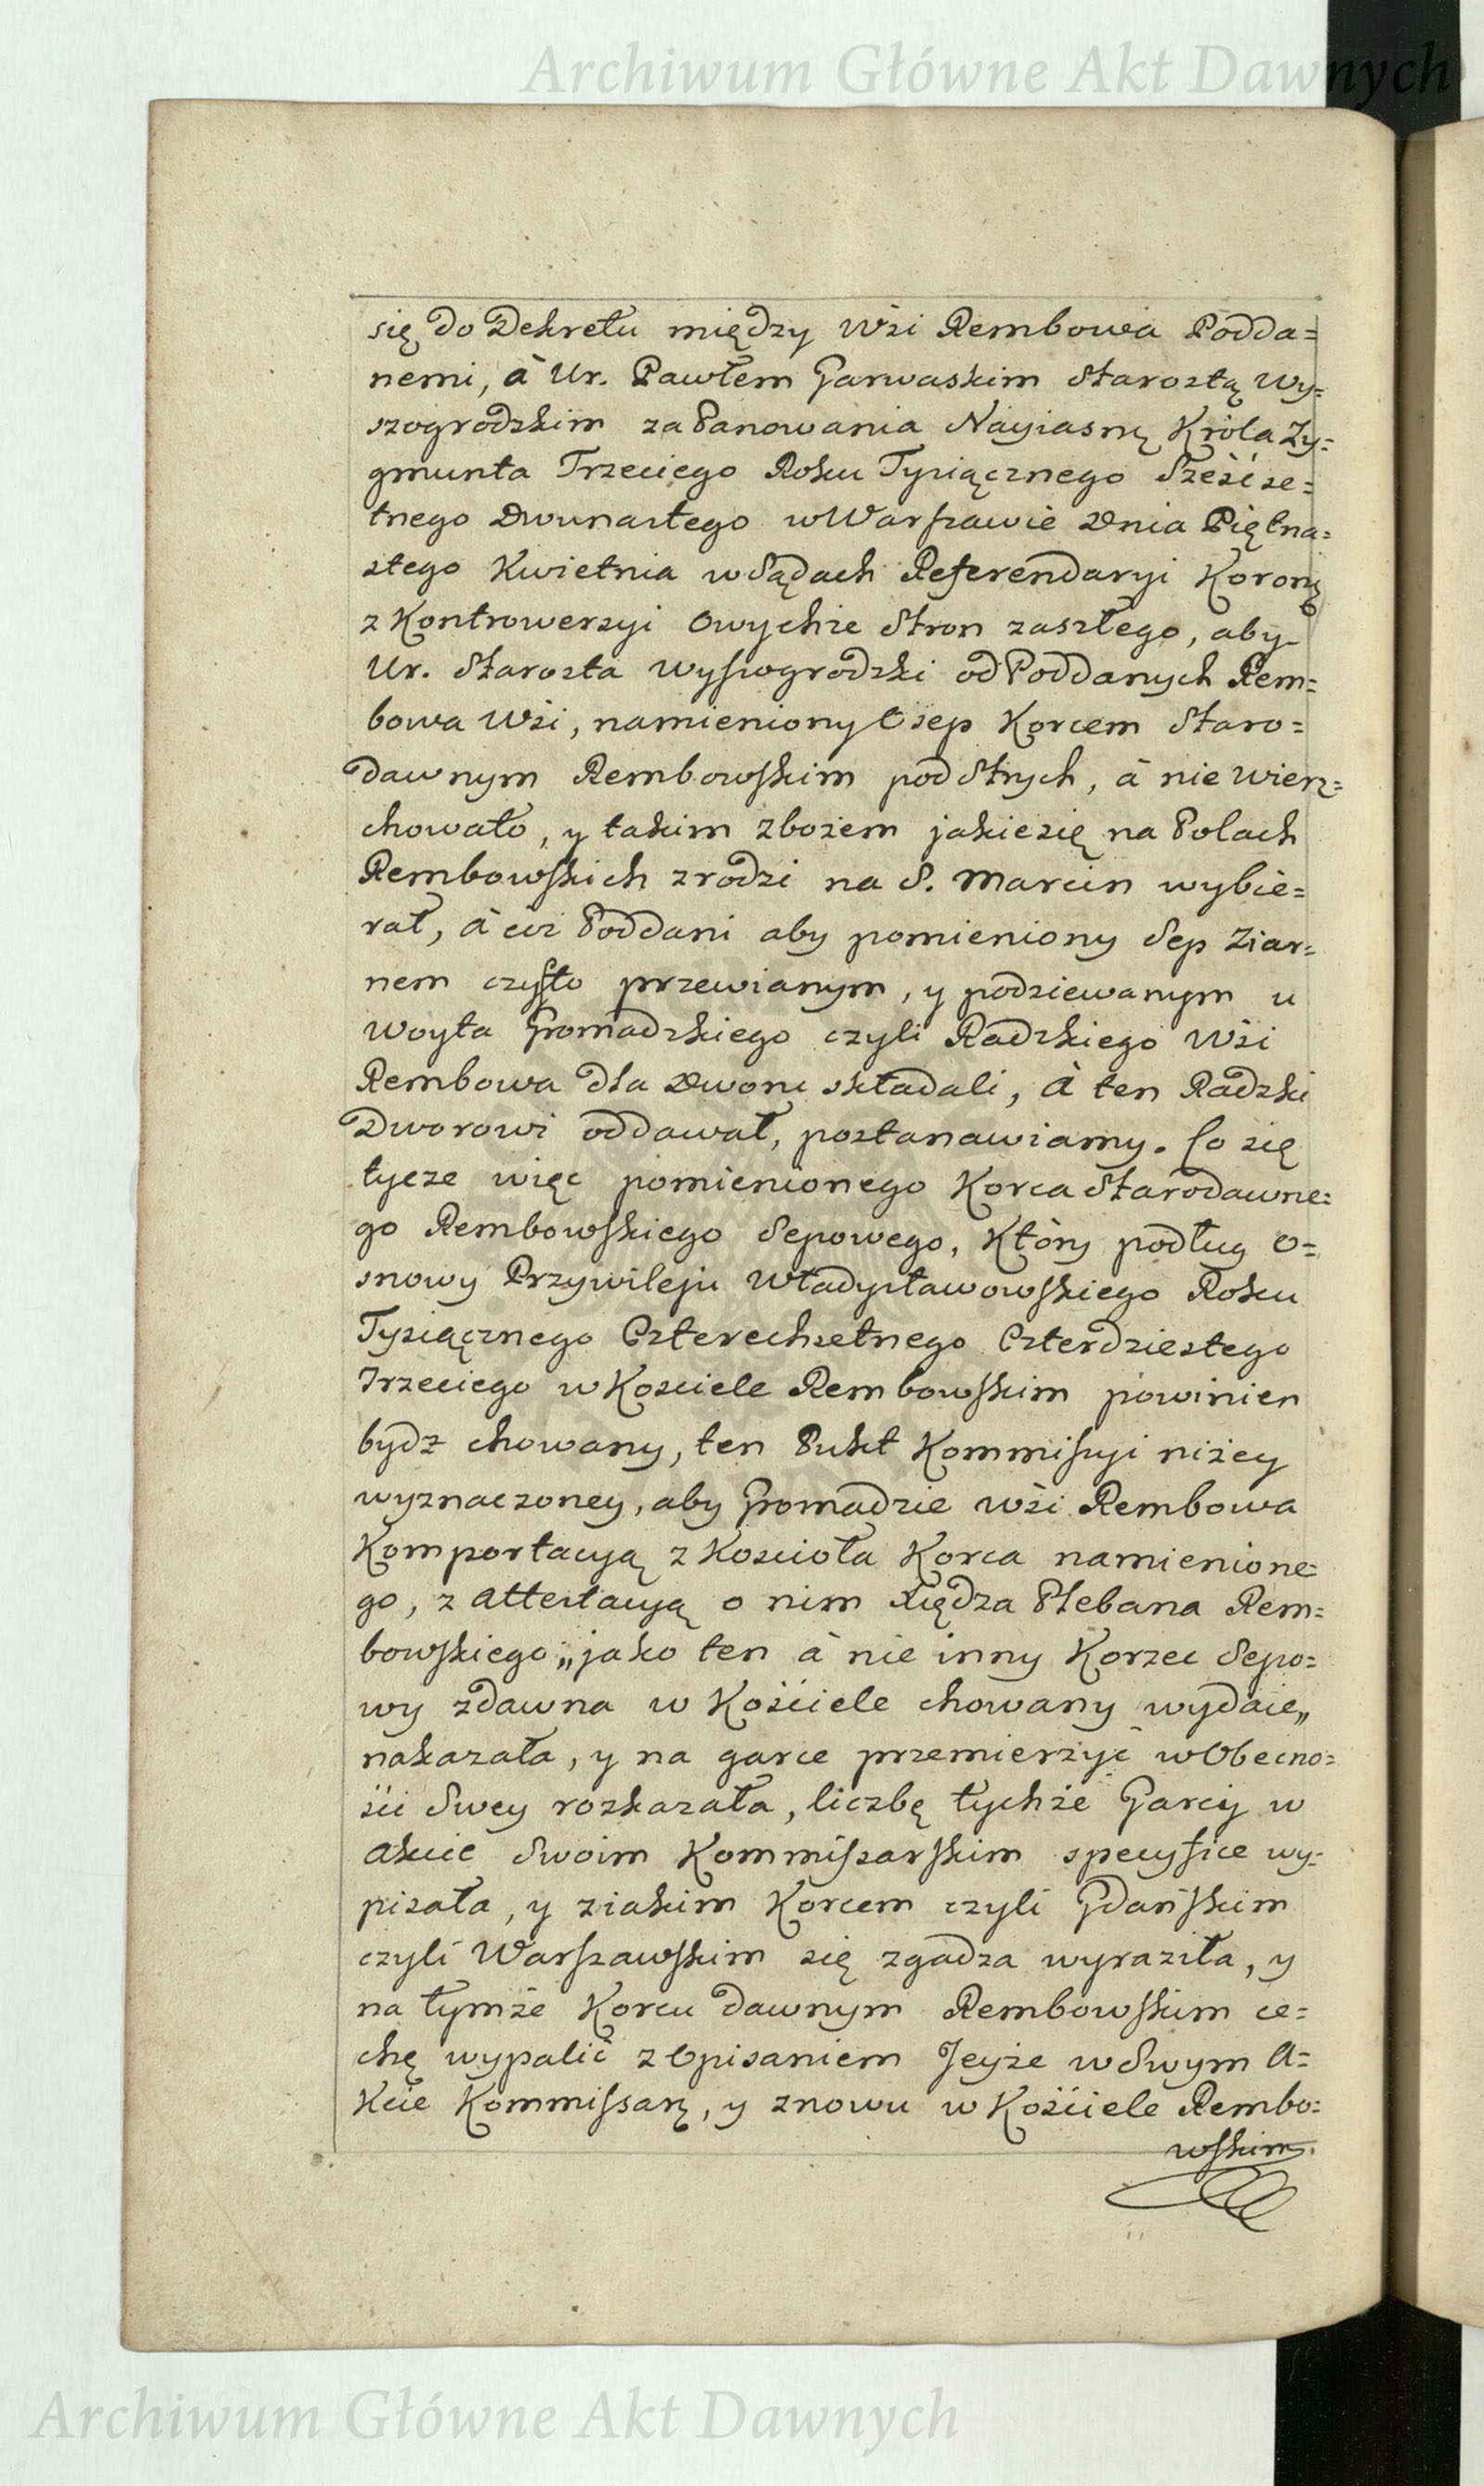 Archiwum Główne Akt Dawnych
się do Dekretu między Wsi Rembowa Podda=
nemi, à Ur. Pawłem Garwaskim Starostą Wy=
szogrodzkim za Panowania Nayiasnę Króla Zy=
gmunta Trzeciego Roku Tysiącznego Sześćse=
tnego Dwunastego w Warszawie Dnia Piętna=
stego Kwietnia w Sądach Referendaryi Koronę
z Kontrowersyi Owychże Stron zaszłego, aby
Ur. Starosta Wyszogrodzki od Poddanych Rem=
bowa Wśi, namieniony Osep Korcem Staro=
dawnym Rembowskim pod Strych, à nie wierz=
chowato, y takim zbożem jakie się na Polach
Rembowskich zrodzi na S. Marcin wybie=
rał, à ciż Poddani aby pomieniony Sep Ziar=
nem czysto przewianym, y podsiewanym u
Woyta Gromadzkiego czyli Radzkiego Wśi
Rembowa dla Dworu składali, à ten Radzki
Dworowi oddawał, postanawiamy. Co się
tycze więc pomienionego Korca Starodawne=
go Rembowskiego Sepowego, Który podług O=
snowy Przywileju Władysławowskiego Roku
Tysiącznego Czterechsetnego Czterdziestego
Trzeciego w Kosciele Rembowskim powinien
bydz chowany, ten Punkt Kommissyi niżey
wyznaczoney, aby Gromadzie wśi Rembowa
Komportacyą z Koscioła Korca namienione=
go, z Attestacyą o nim Xiędza Plebana Rem=
bowskiego „jako ten à nie inny Korzec Sepo=
wy zdawna w Kościele chowany wydaie„
nakazała, y na garce przemierzyć w Obecno=
śći Swey rozkazała, liczbę tychże Garcy w
Akcie Swoim Kommissarskim specyfice wy=
pisała, y z iakim Korcem czyli Gdańskim
czyli Warszawskim się zgadza wyraziła, y
na tymże Korcu dawnym Rembowskim ce=
chę wypalić z Opisaniem Jeyże w Swym A=
kcie Kommissarę, y znowu w Kościele Rembo=
wskim.
Archiwum Główne Akt Dawnych